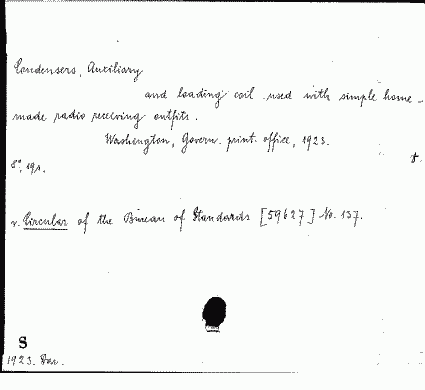 Condensers, Auxiliary
and loading coil used with simple home-
made radio receiving outfits.
Washington, Govern. print. office, 1923.
8°. 19 p.
t.
v. Circular of the Bureau of Standards [59627] No. 137.
S
1923. Dar.